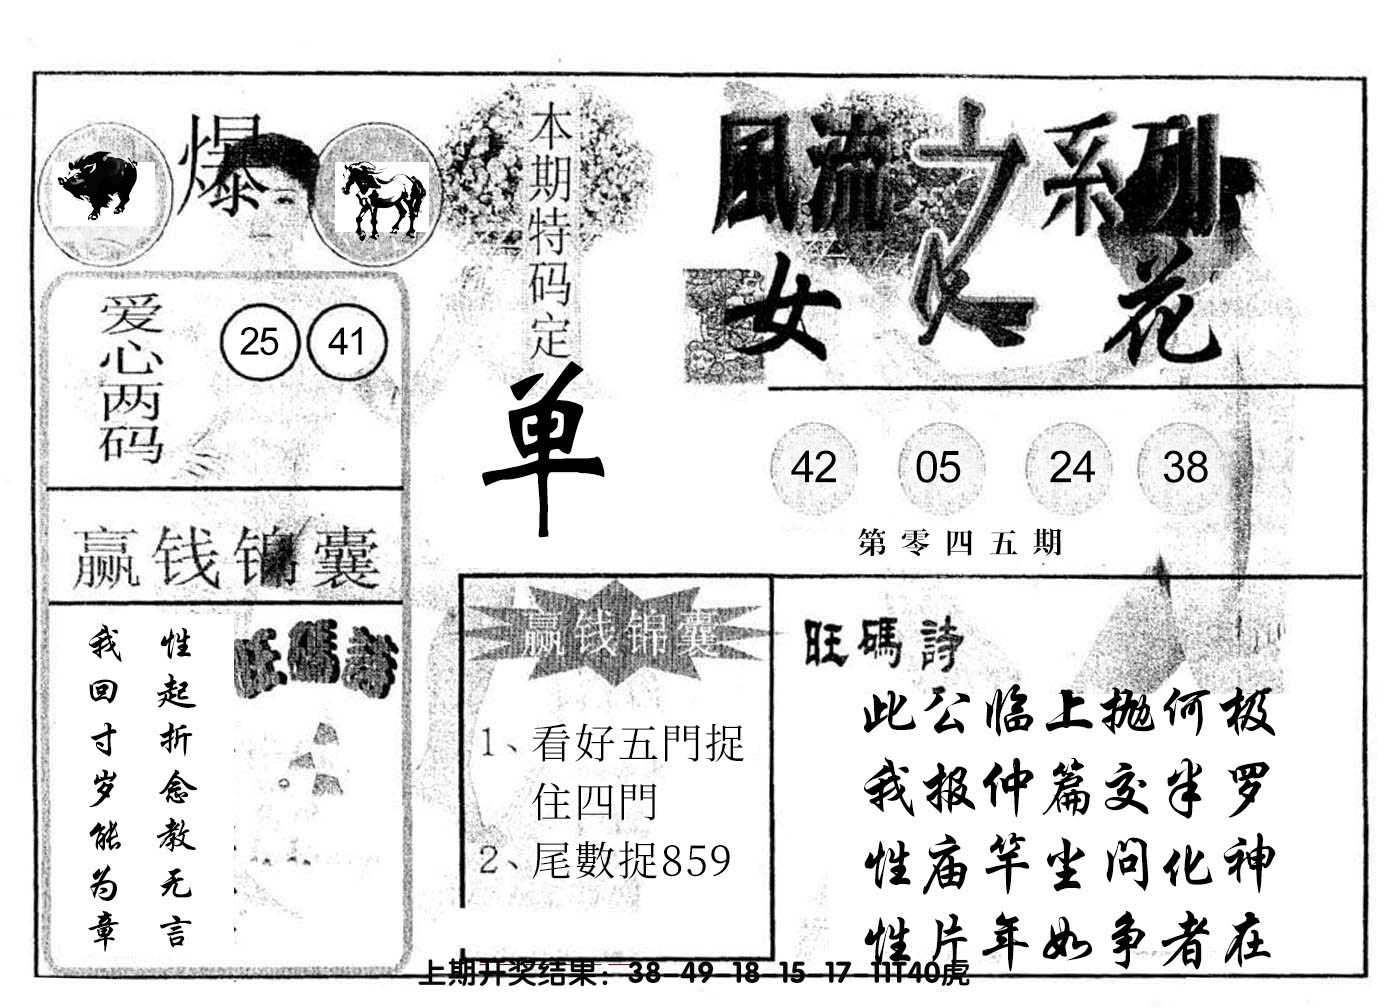 爆
本期特码定
单
風流之系列
女人花
爱心两码
25 41
42 05 24 38
第零四五期
赢钱锦囊
性起折念教无言
我回寸岁能为章
旺碼詩
赢钱锦囊
1、看好五門捉
住四門
2、尾數捉859
旺碼詩
此公临上抛何极
我报仲篇交半罗
性庙竿坐问化神
性片年如争者在
上期开奖结果：38-49-18-15-17-11T40虎